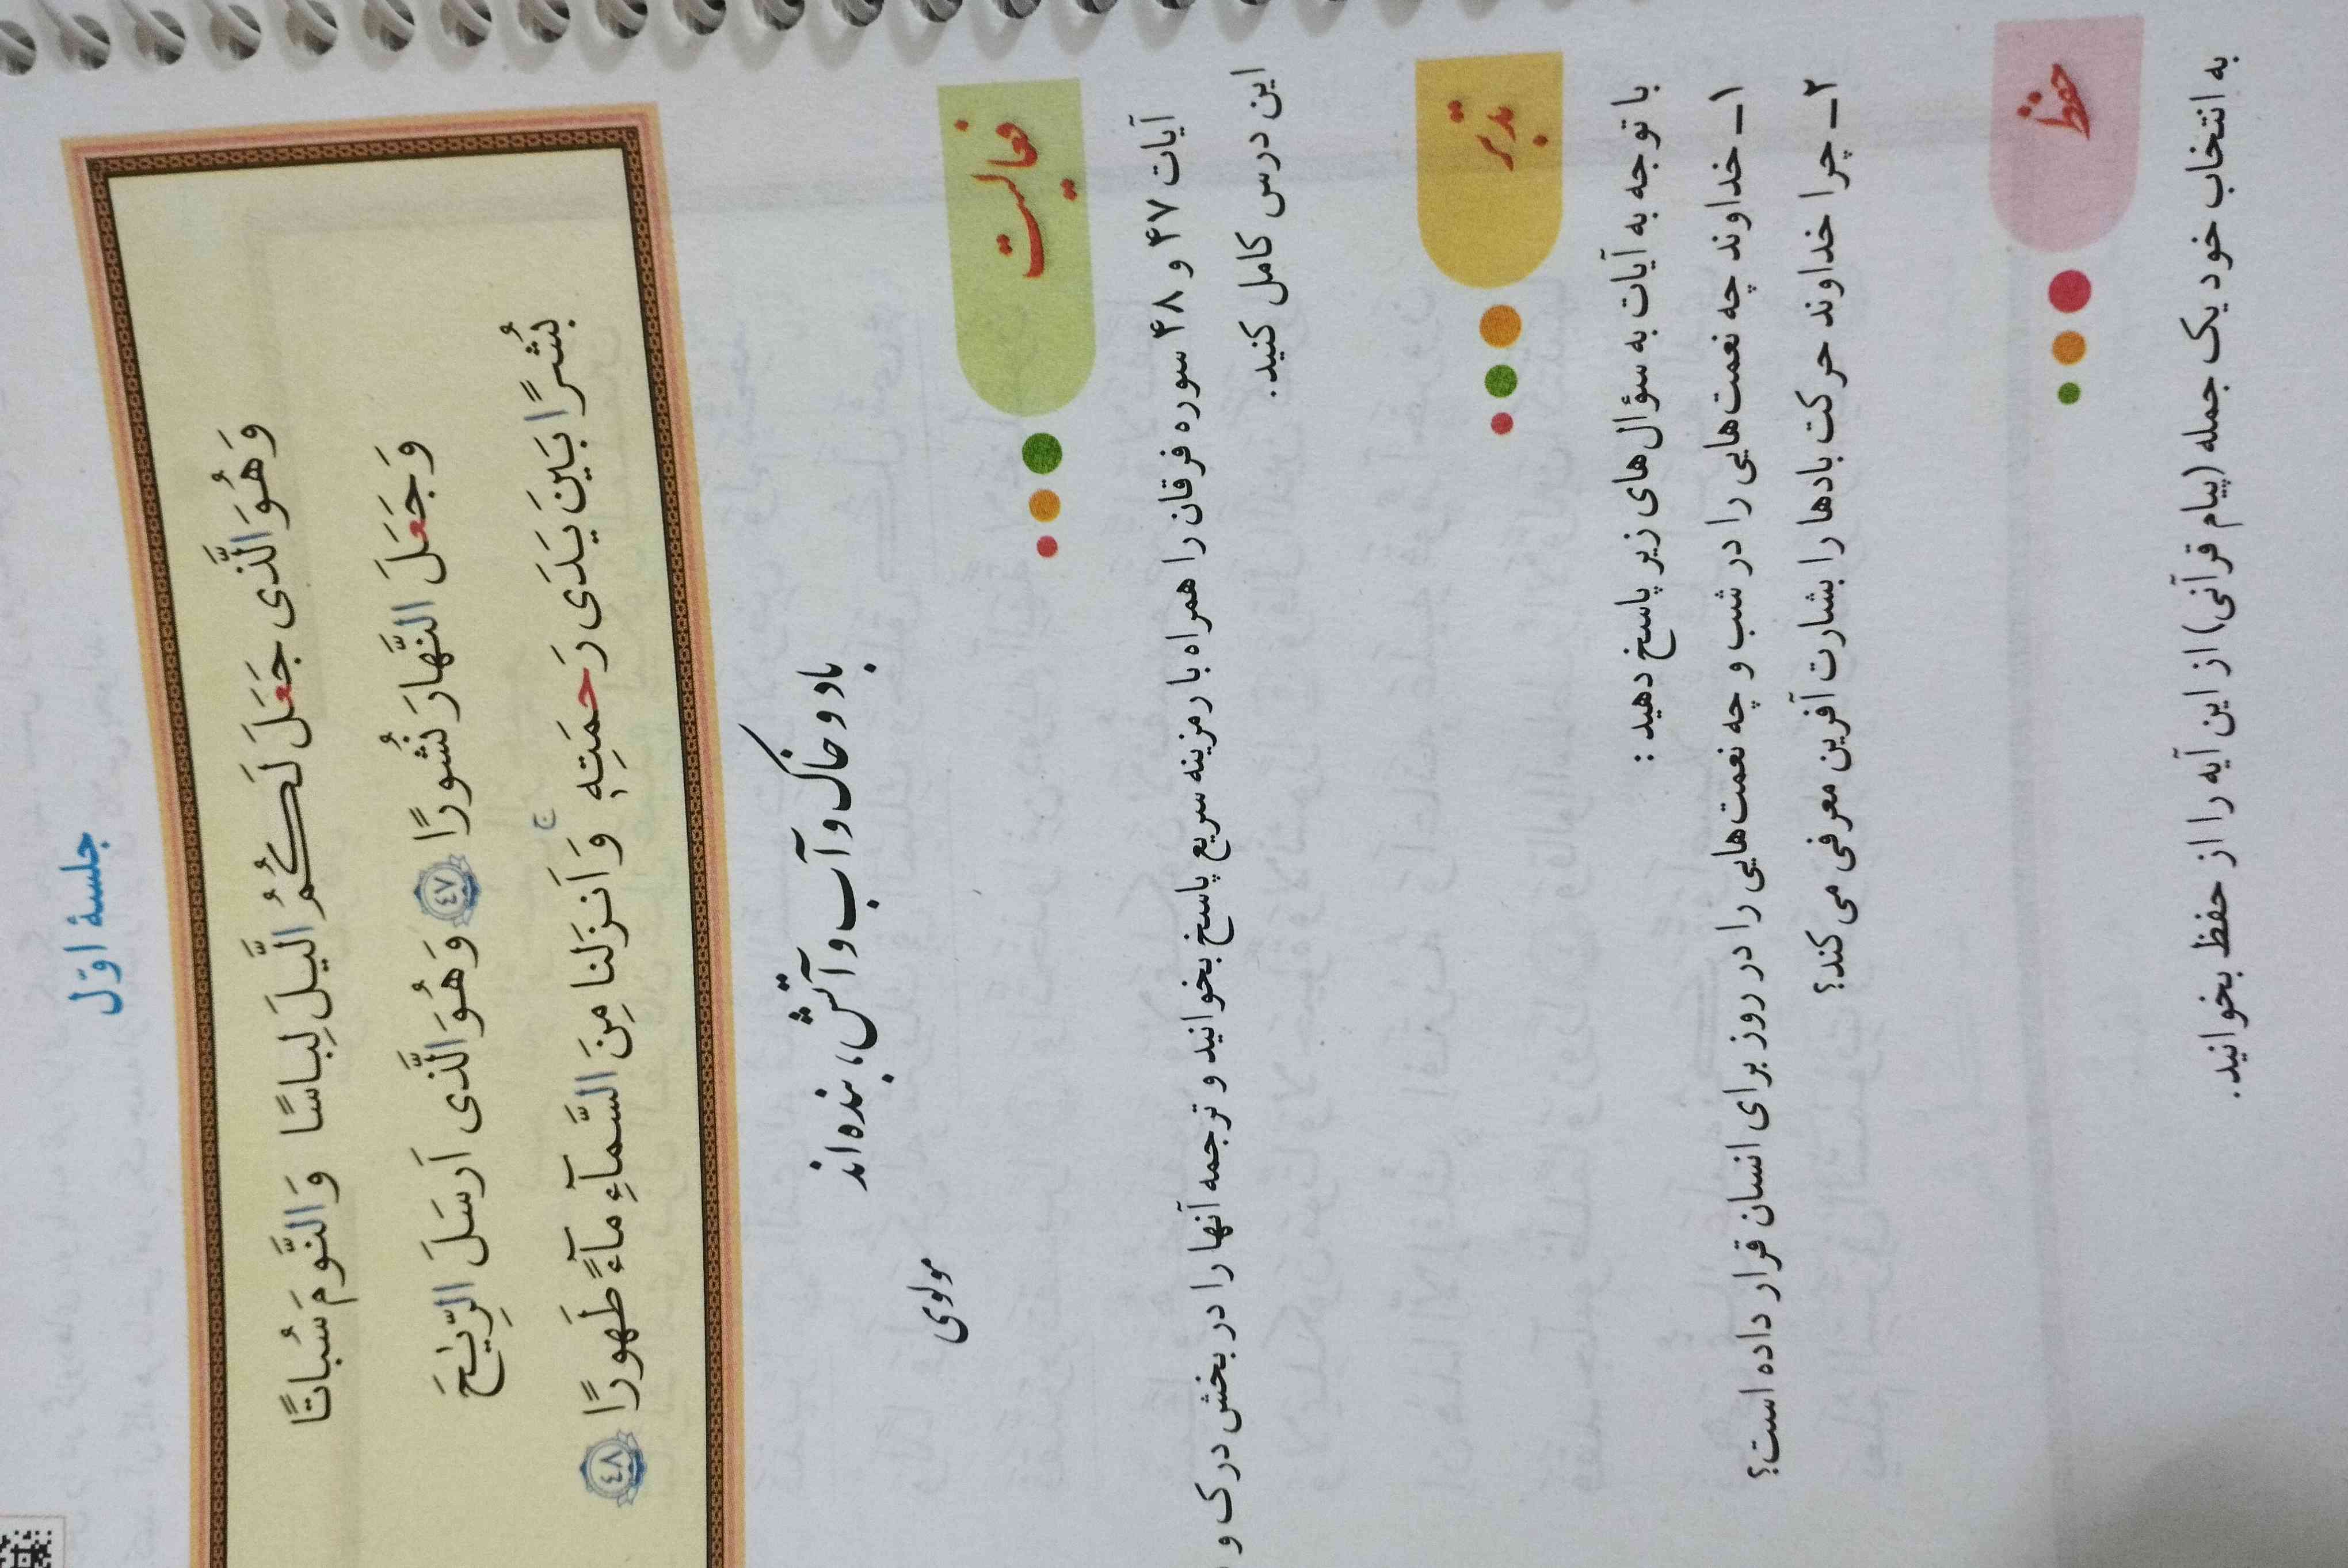 جلسهٔ اوّل
وَ هُوَ الَّذی جَعَلَ لَکُمُ الَّیلَ لِباسًا وَ النَّومَ سُباتًا
وَ جَعَلَ النَّهارَ نُشورًا ﴿٤٧﴾ وَ هُوَ الَّذی اَرسَلَ الرِّیٰحَ
بُشرًا بَینَ یَدَی رَحمَتِهٖ ۚ وَ اَنزَلنا مِنَ السَّمآءِ مآءً طَهورًا ﴿٤٨﴾
باد و خاک و آب و آتش، بنده‌اند
مولوی
فعالیت
آیات ۴۷ و ۴۸ سوره فرقان را همراه با رمزینه سریع پاسخ بخوانید و ترجمه آنها را در بخش درک و
این درس کامل کنید.
تدبّر
با توجه به آیات به سؤال‌های زیر پاسخ دهید :
۱ـ خداوند چه نعمت‌هایی را در شب و چه نعمت‌هایی را در روز برای انسان قرار داده است؟
۲ـ چرا خداوند حرکت بادها را بشارت آفرین معرفی می‌کند؟
حفظ
به انتخاب خود یک جمله (پیام قرآنی) از این آیه را از حفظ بخوانید.